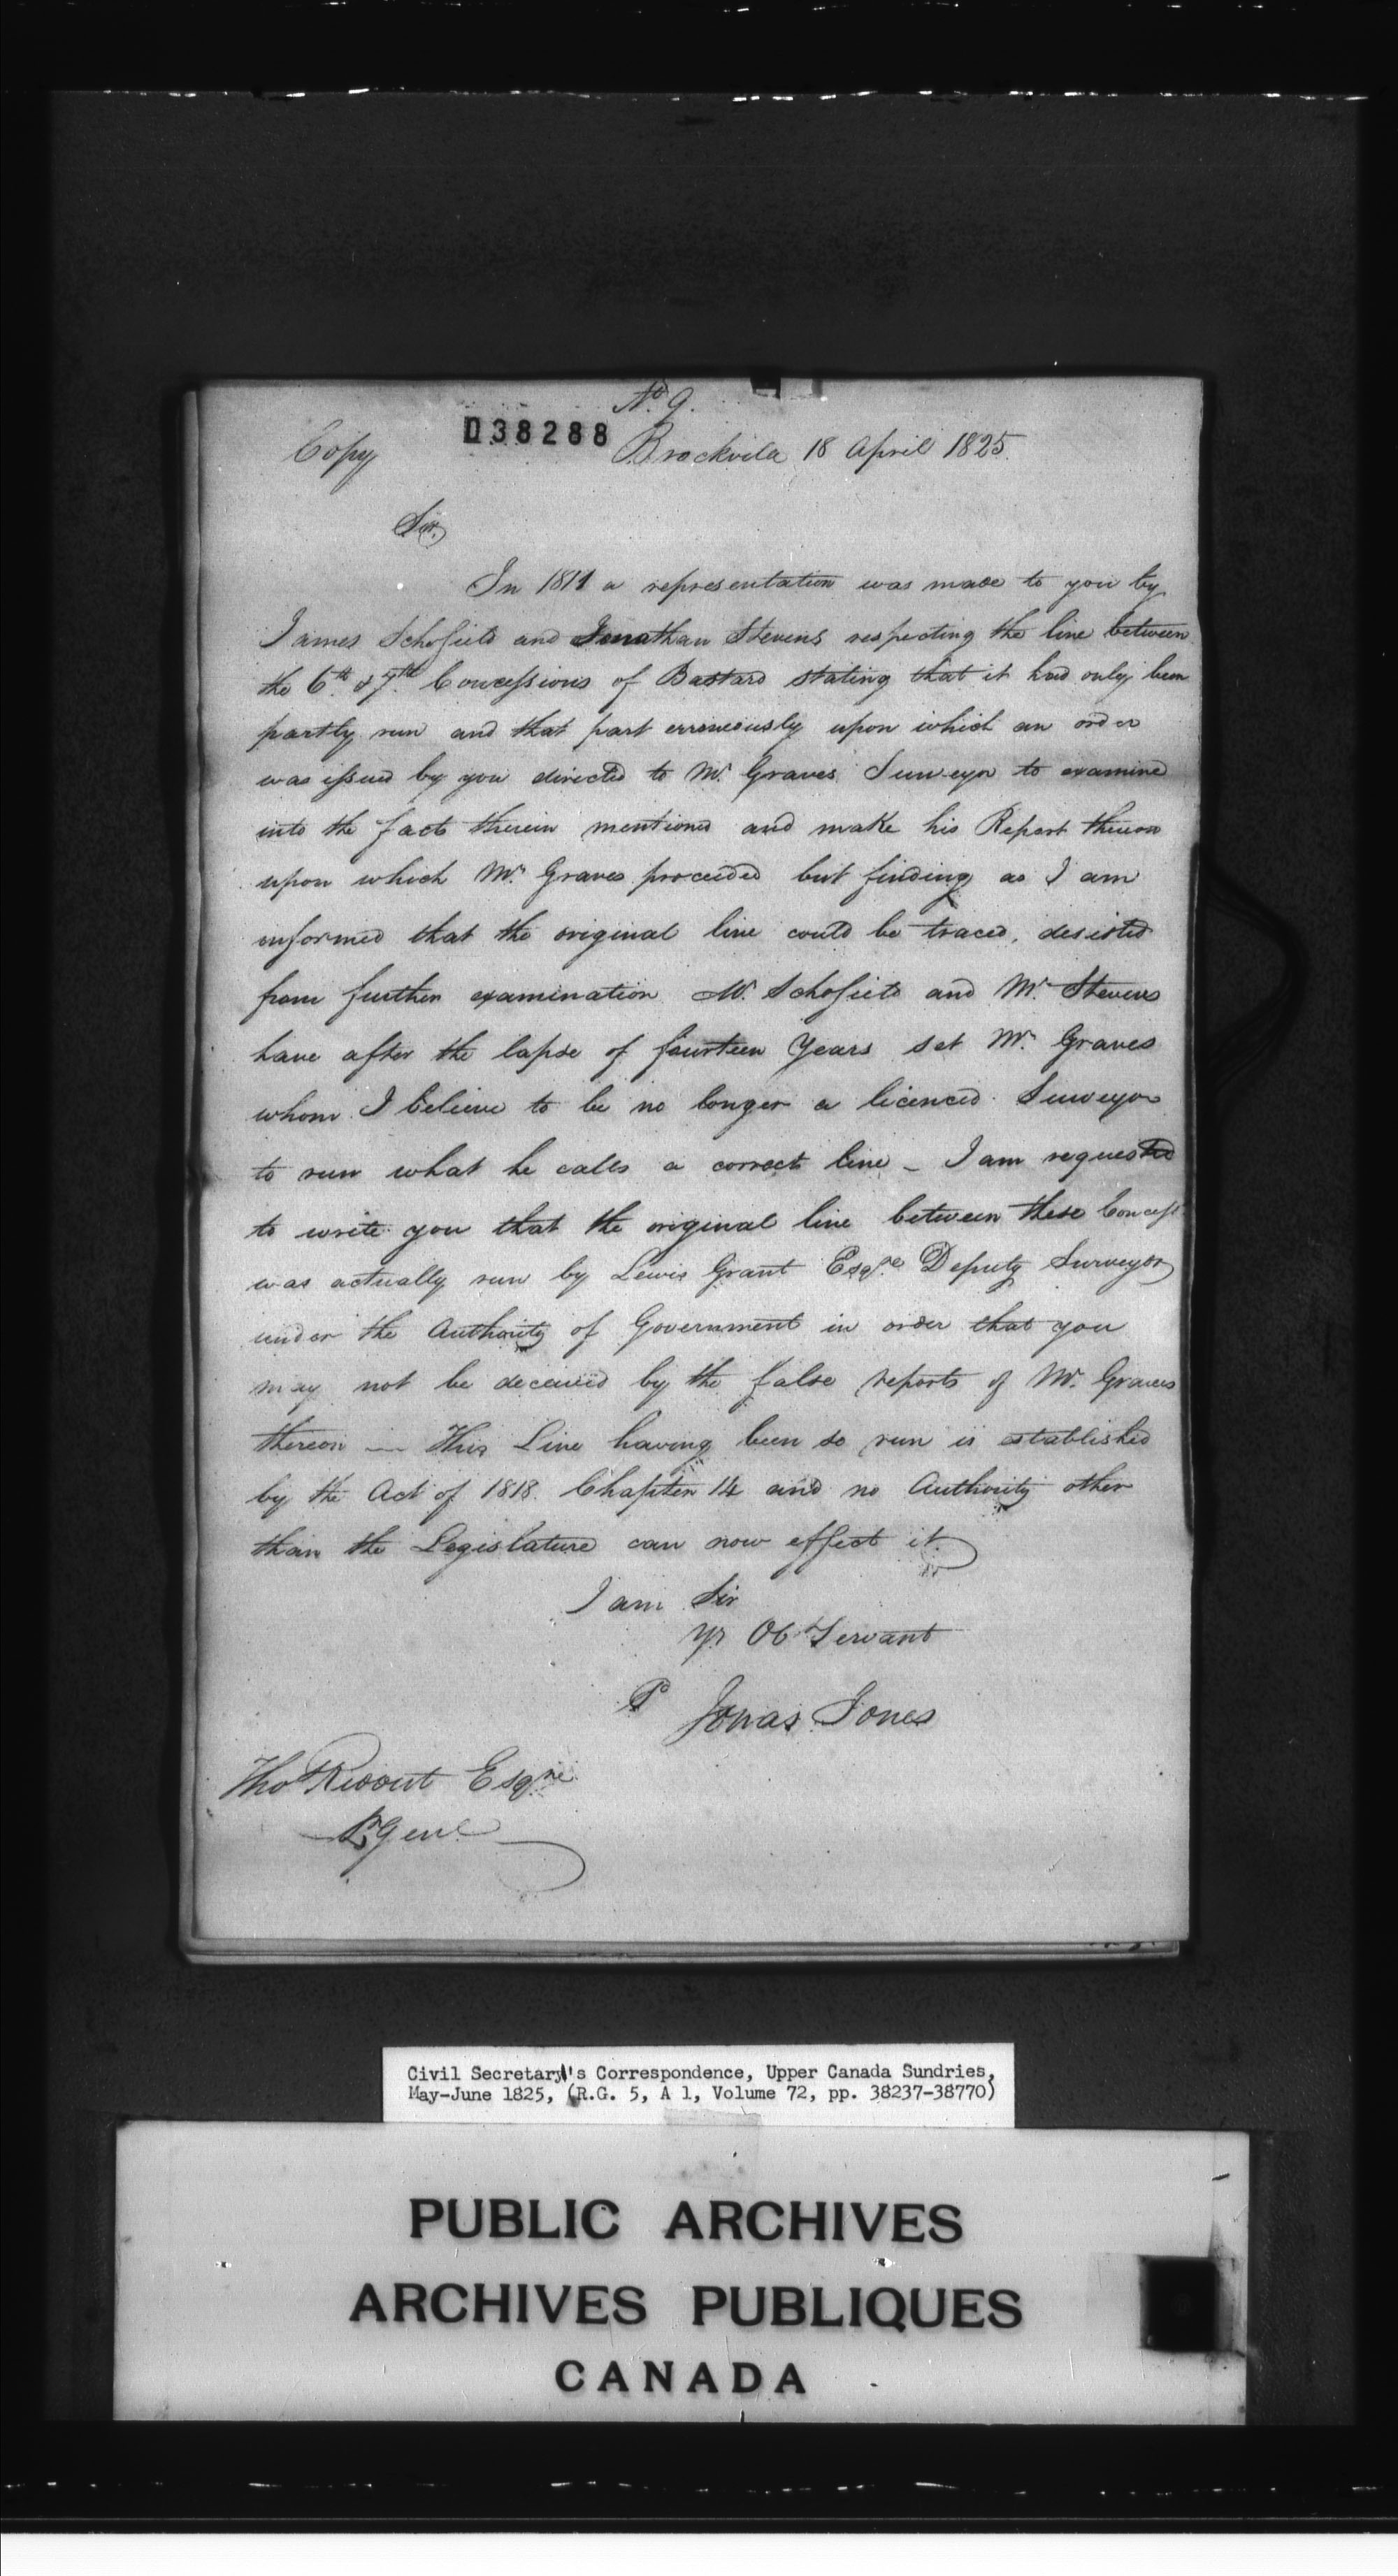 No. 9.
Copy 038288 Brockvila 18 April 1825.
Sir,
In 1811 a representation was made to you by
James Schofield and Jonathan Stevens respecting the line between
the 6th & 7th Concessions of Bastard stating that it had only been
partly run and that part erroneously upon which an order
was issued by you directed to Mr. Graves Surveyor to examine
into the facts therein mentioned and make his Report thereon
upon which Mr. Graves proceeded but finding as I am
informed that the original line could be traced, desisted
from further examination Mr. Schofield and Mr. Stevens
have after the lapse of fourteen Years set Mr. Graves
whom I believe to be no longer a licenced Surveyor
to run what he calls a correct line - I am requested
to write you that the original line between these Concess
was actually run by Lewis Grant Esqre Deputy Surveyor
under the Authority of Government in order that you
may not be deceived by the false reports of Mr. Graves
thereon — This Line having been so run is established
by the Act of 1818. Chapter 14 and no Authority other
than the Legislature can now effect it.
I am Sir
Yr Ob Servant
Jonas Jones
Tho Ridout Esqre
Sr Genl
Civil Secretary's Correspondence, Upper Canada Sundries,
May-June 1825, (R.G. 5, A 1, Volume 72, pp. 38237-38770)
PUBLIC ARCHIVES
ARCHIVES PUBLIQUES
CANADA